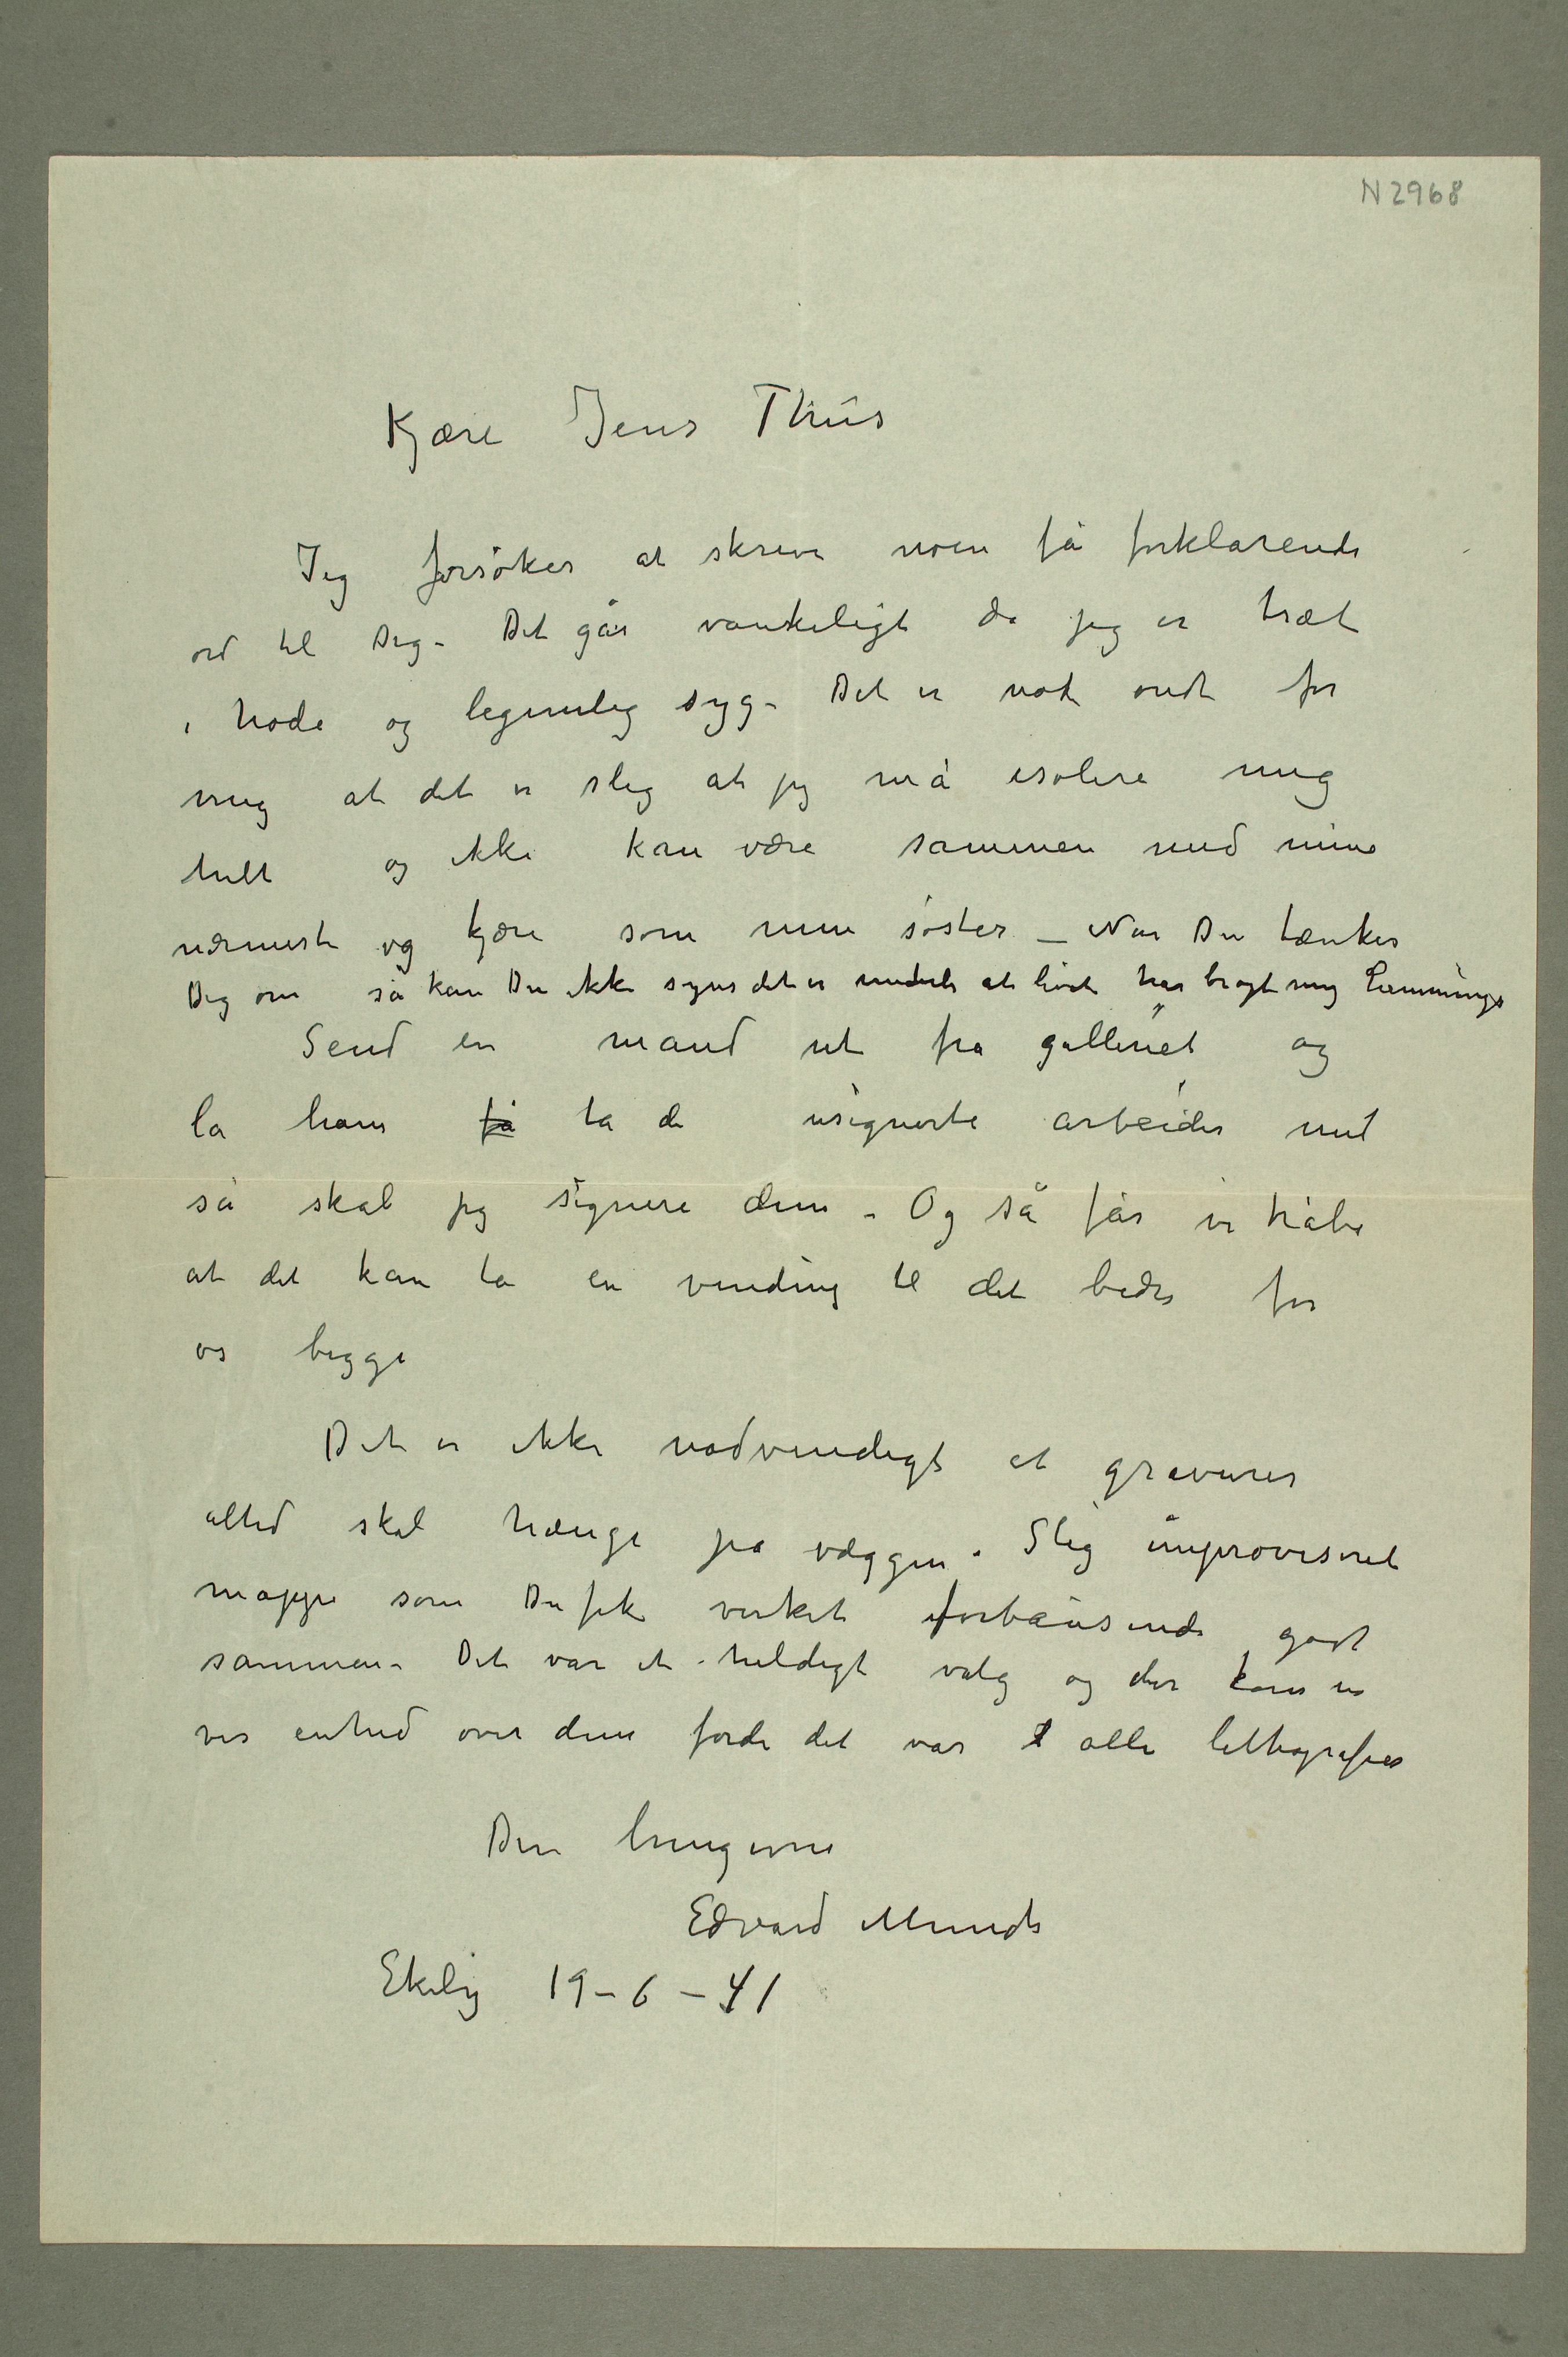 N 2968
Kjære Jens Thiis
Jeg forsøker at skrive noen få forklarende
ord til Dig – Det går vanskeligt da jeg er træt
i hode og legemlig syg – Det er nok ondt for
mig at det er slig at jeg må isolere mig
helt og ikke kan være sammen med mine
nærmeste og kjære som min søster – Når Du tænker
Dig om så kan Du ikke synes det er underlig at livet har bragt mig hæmninger
Send en mand ut fra galleriet og
la ham få ta de usignerte arbeider med
så skal jeg signere dem – Og så får vi håbe
at det kan ta en vending til det bedre for
os begge
Det er ikke nødvendigt at gravurer
altid skal hænge på væggen. Slig improviseret
mappe som Du fik virket forbausende godt
sammen – Det var et heldigt valg og der kom en
vis enhed over dem fordi det var alle lithografier
Din hengivne
Edvard Munch
Ekely 19–6–41